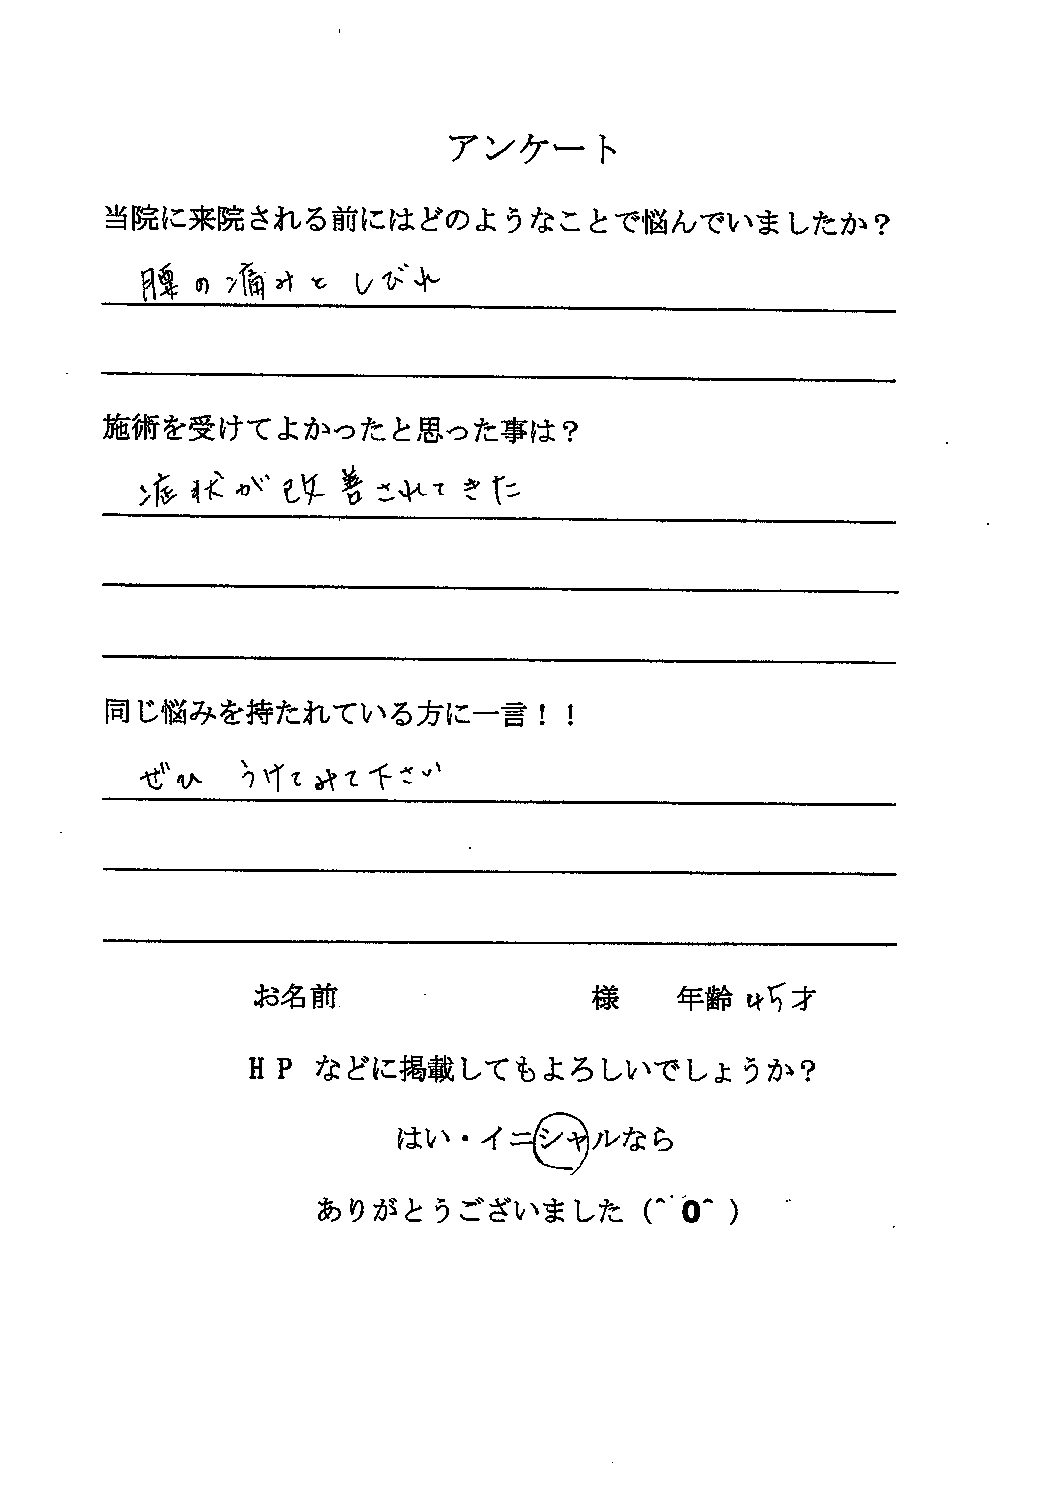 アンケート
当院に来院される前にはどのようなことで悩んでいましたか？
腰の痛みと しびれ
施術を受けてよかったと思った事は？
症状が改善されてきた
同じ悩みを持たれている方に一言！！
ぜひ うけてみて下さい
お名前 様 年齢 45才
HP などに掲載してもよろしいでしょうか？
はい・イニシャルなら
ありがとうございました（＾0＾）